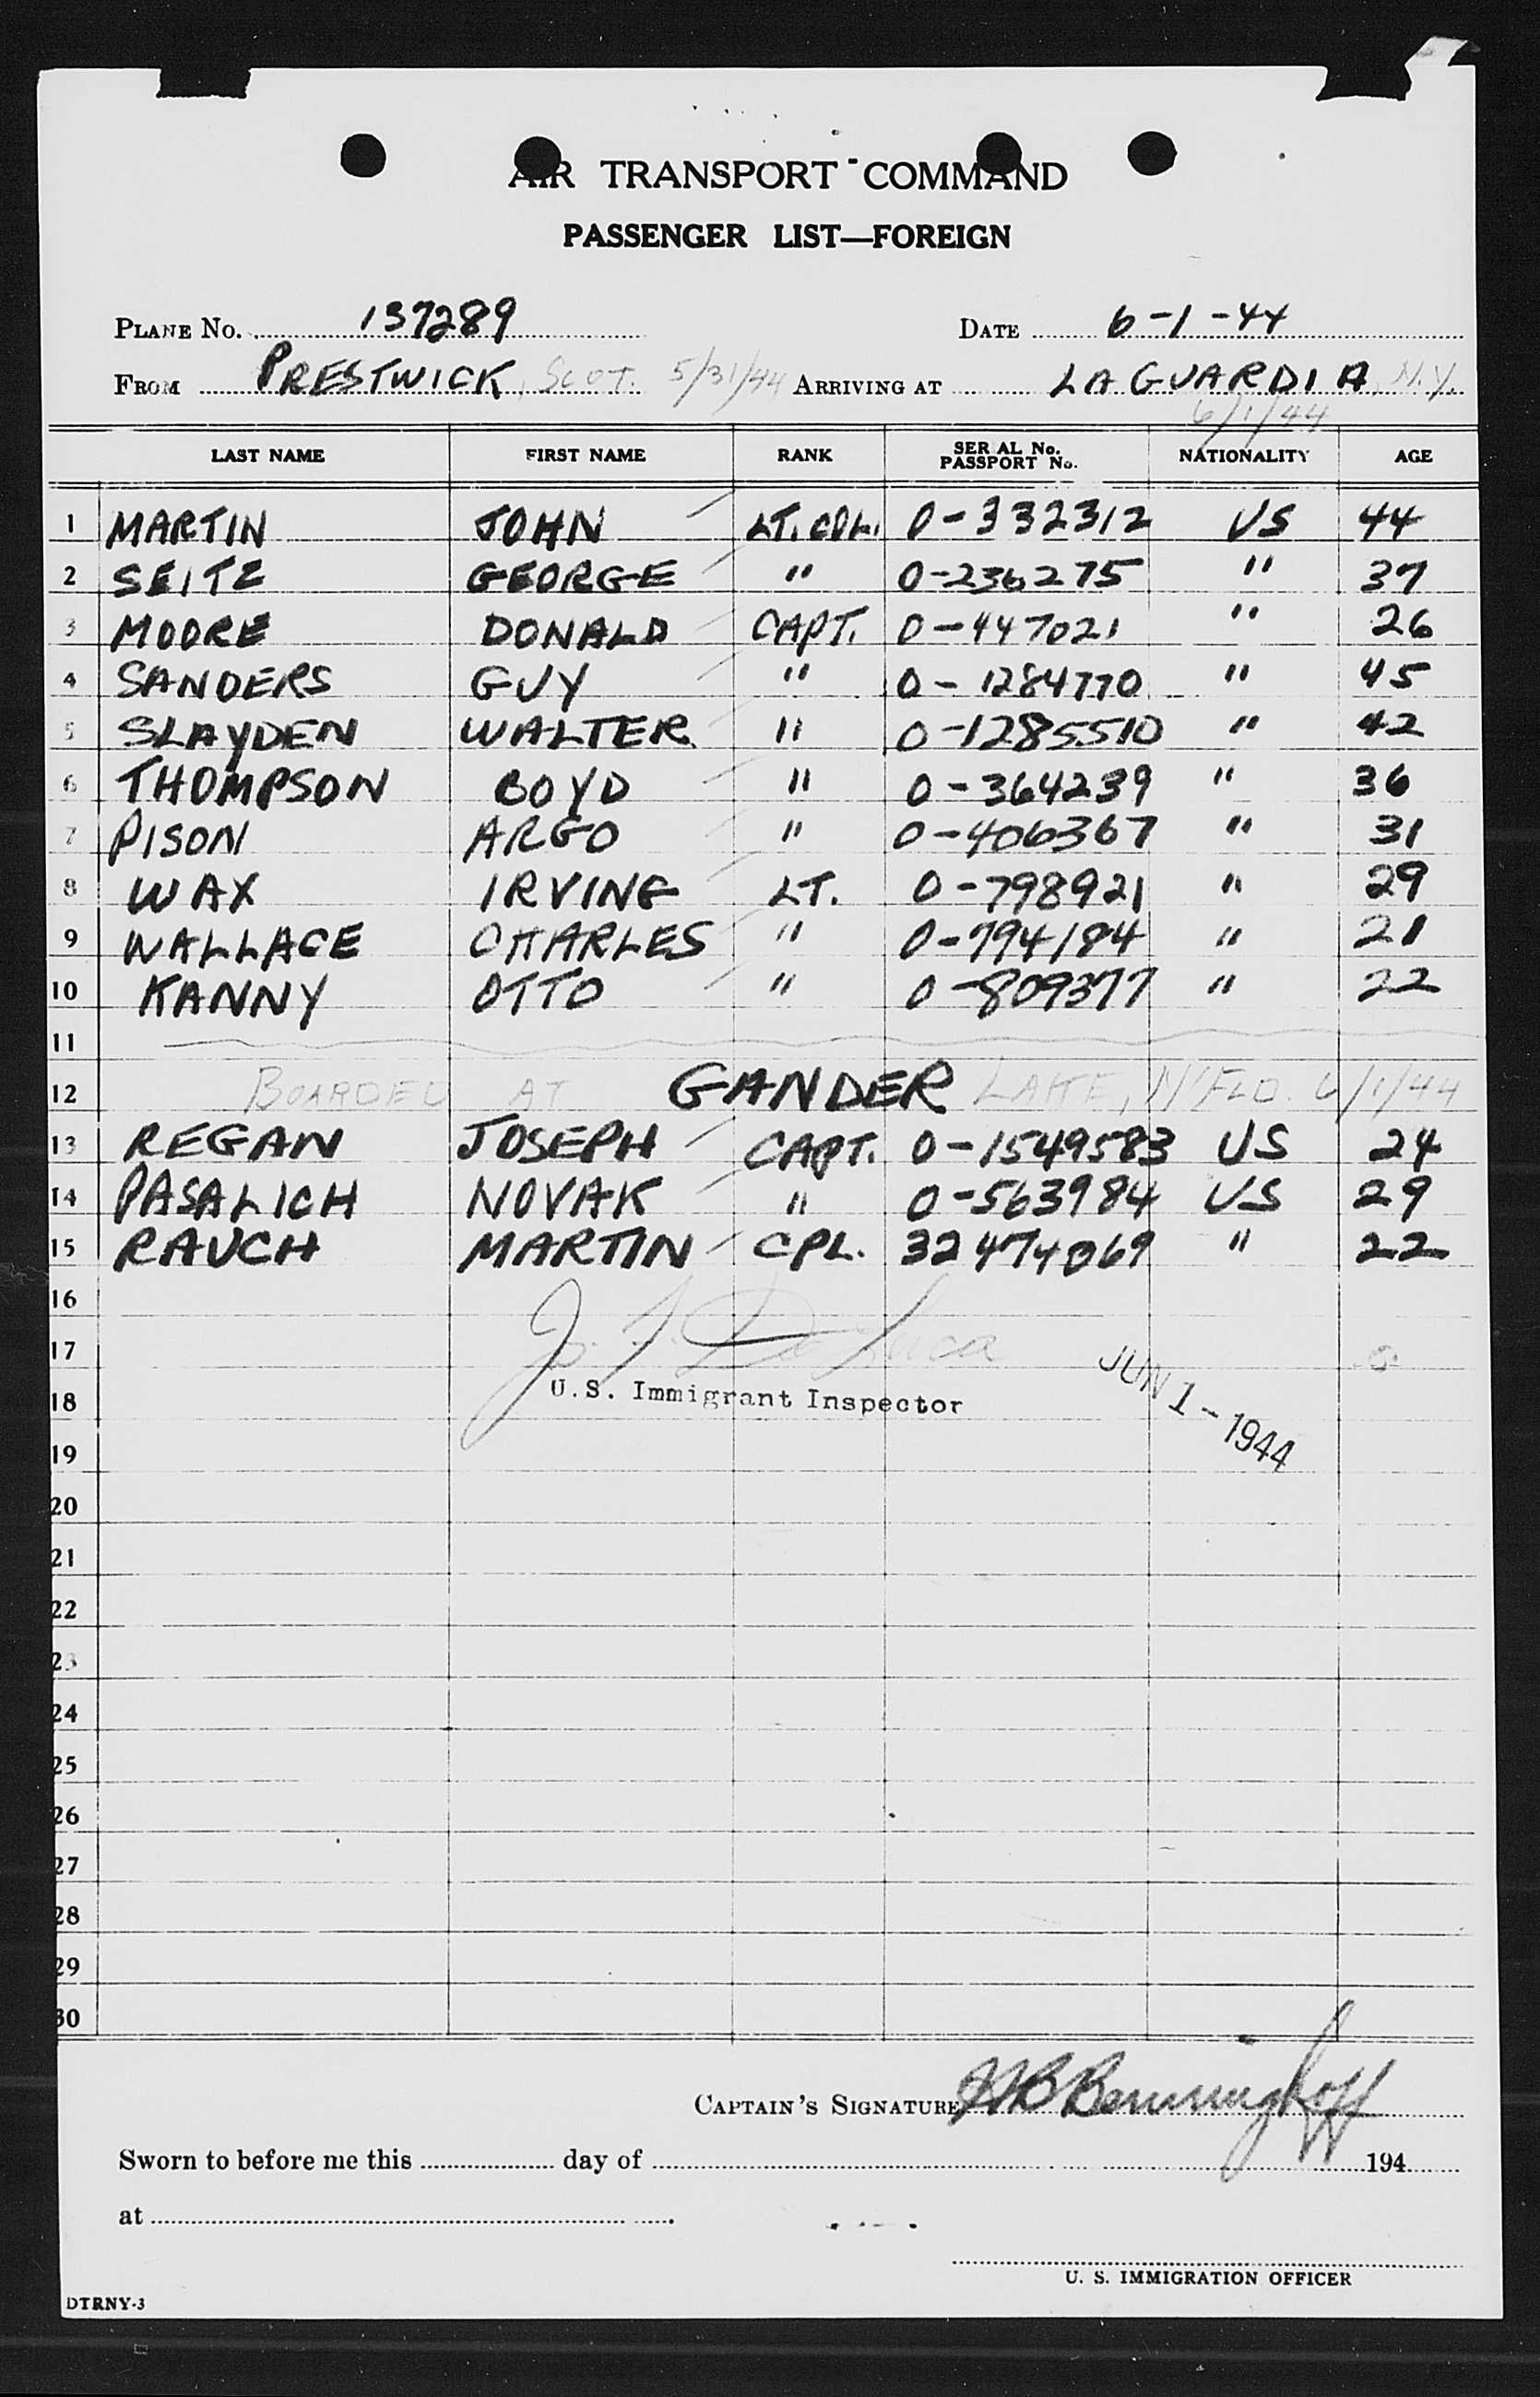 AIR TRANSPORT COMMAND
PASSENGER LIST—FOREIGN
PLANE No. 137289 DATE 6-1-44
FROM PRESTWICK, SCOT. 5/31/44 ARRIVING AT LA GUARDIA, N.Y.
6/1/44
LAST NAME FIRST NAME RANK SERIAL No. PASSPORT No. NATIONALITY AGE
1 MARTIN JOHN LT. COL. 0-332312 US 44
2 SEITZ GEORGE " 0-236275 " 37
3 MOORE DONALD CAPT. 0-447021 " 26
4 SANDERS GUY " 0-1284770 " 45
5 SLAYDEN WALTER " 0-1285510 " 42
6 THOMPSON BOYD " 0-364239 " 36
7 PISON ARGO " 0-406367 " 31
8 WAX IRVING LT. 0-798921 " 29
9 WALLACE CHARLES " 0-794184 " 21
10 KANNY OTTO " 0-809377 " 22
11
12 BOARDED AT GANDER LAKE, N'FLD. 6/1/44
13 REGAN JOSEPH CAPT. 0-1549583 US 24
14 PASALICH NOVAK " 0-563984 US 29
15 RAUCH MARTIN CPL. 32474069 " 22
16
17 J. F. De Luca
18 U.S. Immigrant Inspector JUN 1-1944
19
20
21
22
23
24
25
26
27
28
29
30
CAPTAIN'S SIGNATURE HB Benninghoff
Sworn to before me this day of 194
at
U. S. IMMIGRATION OFFICER
DTRNY-3